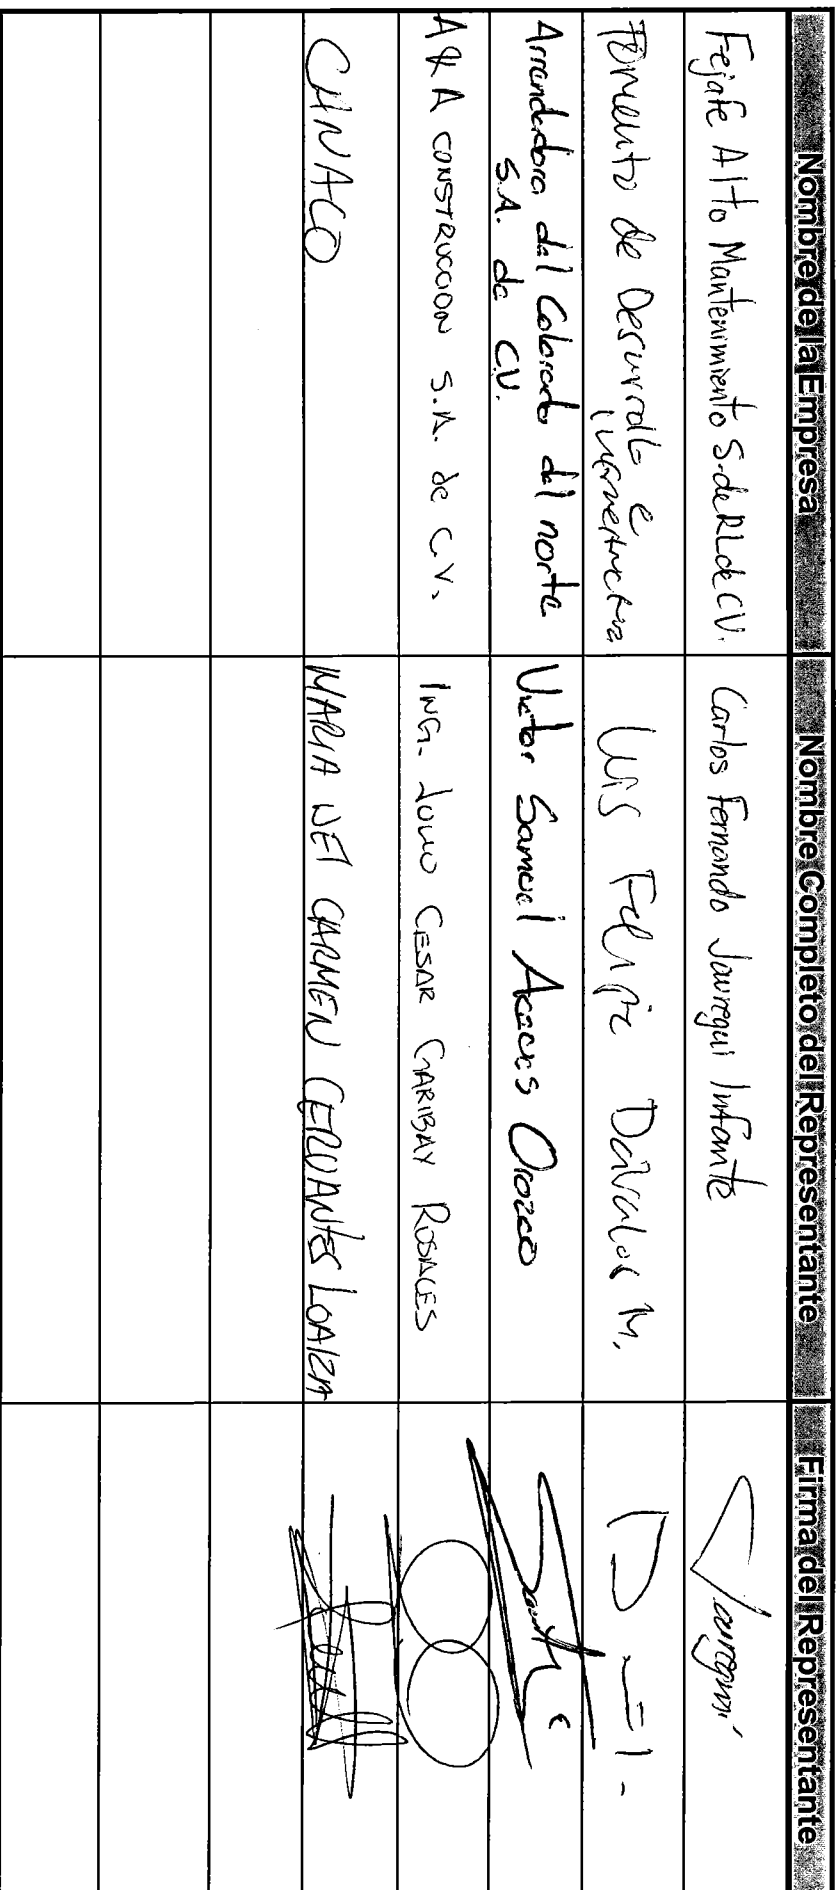 Nombre de la Empresa Nombre Completo del Representante Firma del Representante
Fejafe Alto Mantenimiento S.de RL de C.V. Carlos Fernando Jauregui Infante Jauregui
Fomento de Desarrollo e Luis Felipe Dávalos M.
Infraestructura
Arrendadora del Colorado del norte Victor Samuel Aceves Orozco
S.A. de C.V.
A & A CONSTRUCCION S.A. de C.V. ING. JULIO CESAR GARIBAY ROSALES
CANACO MARIA DEL CARMEN CERVANTES LOAIZA